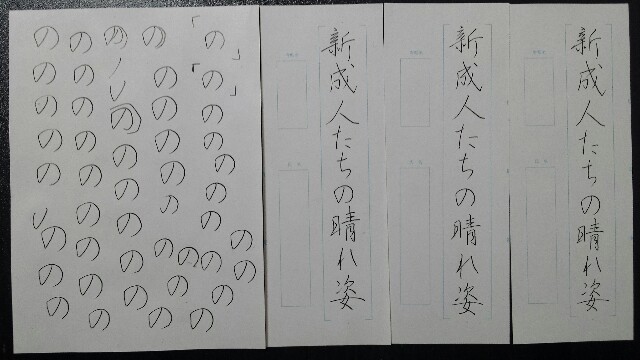 新成人たちの晴れ姿
新成人たちの晴れ姿
新成人たちの晴れ姿
「の」「の」のののののののののの
のののののののののの
ののののののの
ののののののののの
のののののののの